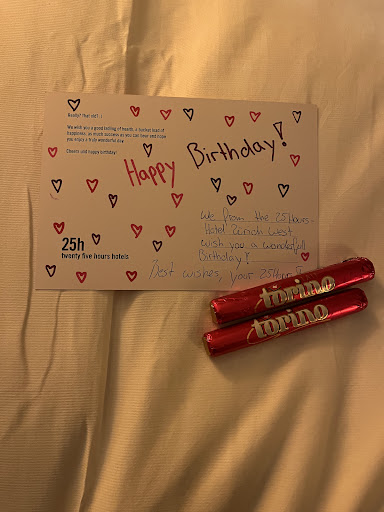 Really? That old? :)
We wish you a good lashing of health, a bucket load of
happiness, as much success as you can have and hope
you enjoy a truly wonderful day.
Cheers and happy birthday!
Happy Birthday!
We from the 25Hours-
Hotel Zürich West
wish you a wonderfull
Birthday!
Best wishes, your 25Hour
25h
twenty five hours hotels
torino
torino